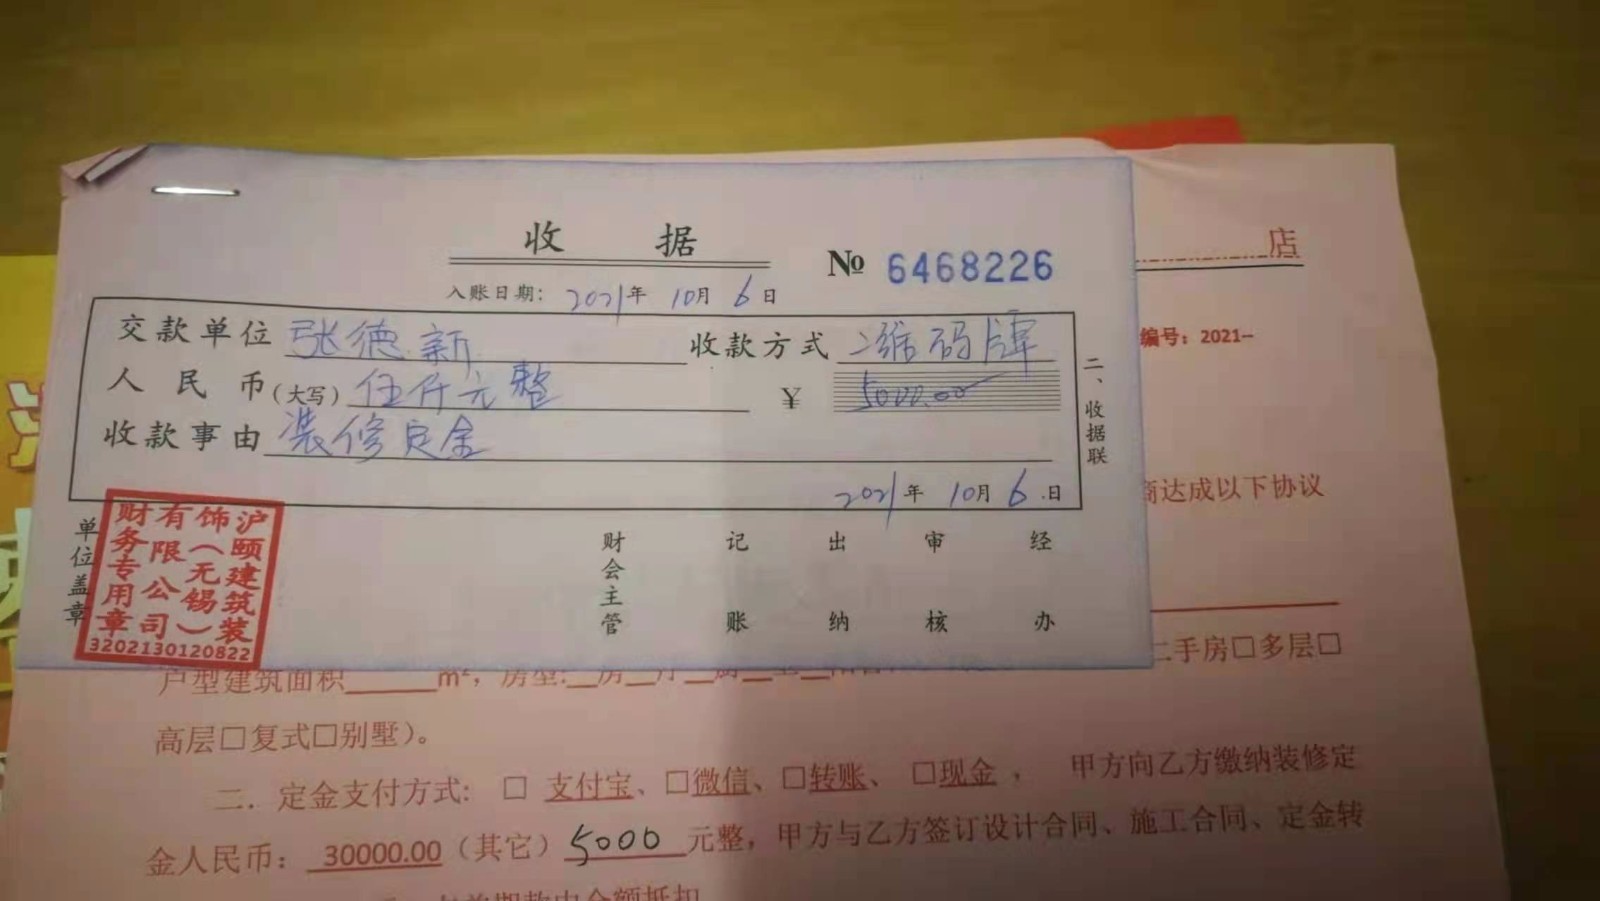 收 据
№ 6468226
入账日期: 2021年 10月 6日
交款单位 张德新 收款方式 二维码牌
人民币(大写) 伍仟元整 ¥ 5000.00
收款事由 装修定金
2021年 10月 6日
二、收据联
单位盖章
沪颐建筑装
饰(无锡)
有限公司
财务专用章
3202130120822
财会主管 记账 出纳 审核 经办
店
编号: 2021--
商达成以下协议
二手房□多层□
户型建筑面积______m², 房型:__房__厅__厨__
高层□复式□别墅)。
二. 定金支付方式: □ 支付宝、□微信、□转账、 □现金, 甲方向乙方缴纳装修定
金人民币: 30000.00 (其它) 5000 元整, 甲方与乙方签订设计合同、施工合同、定金转